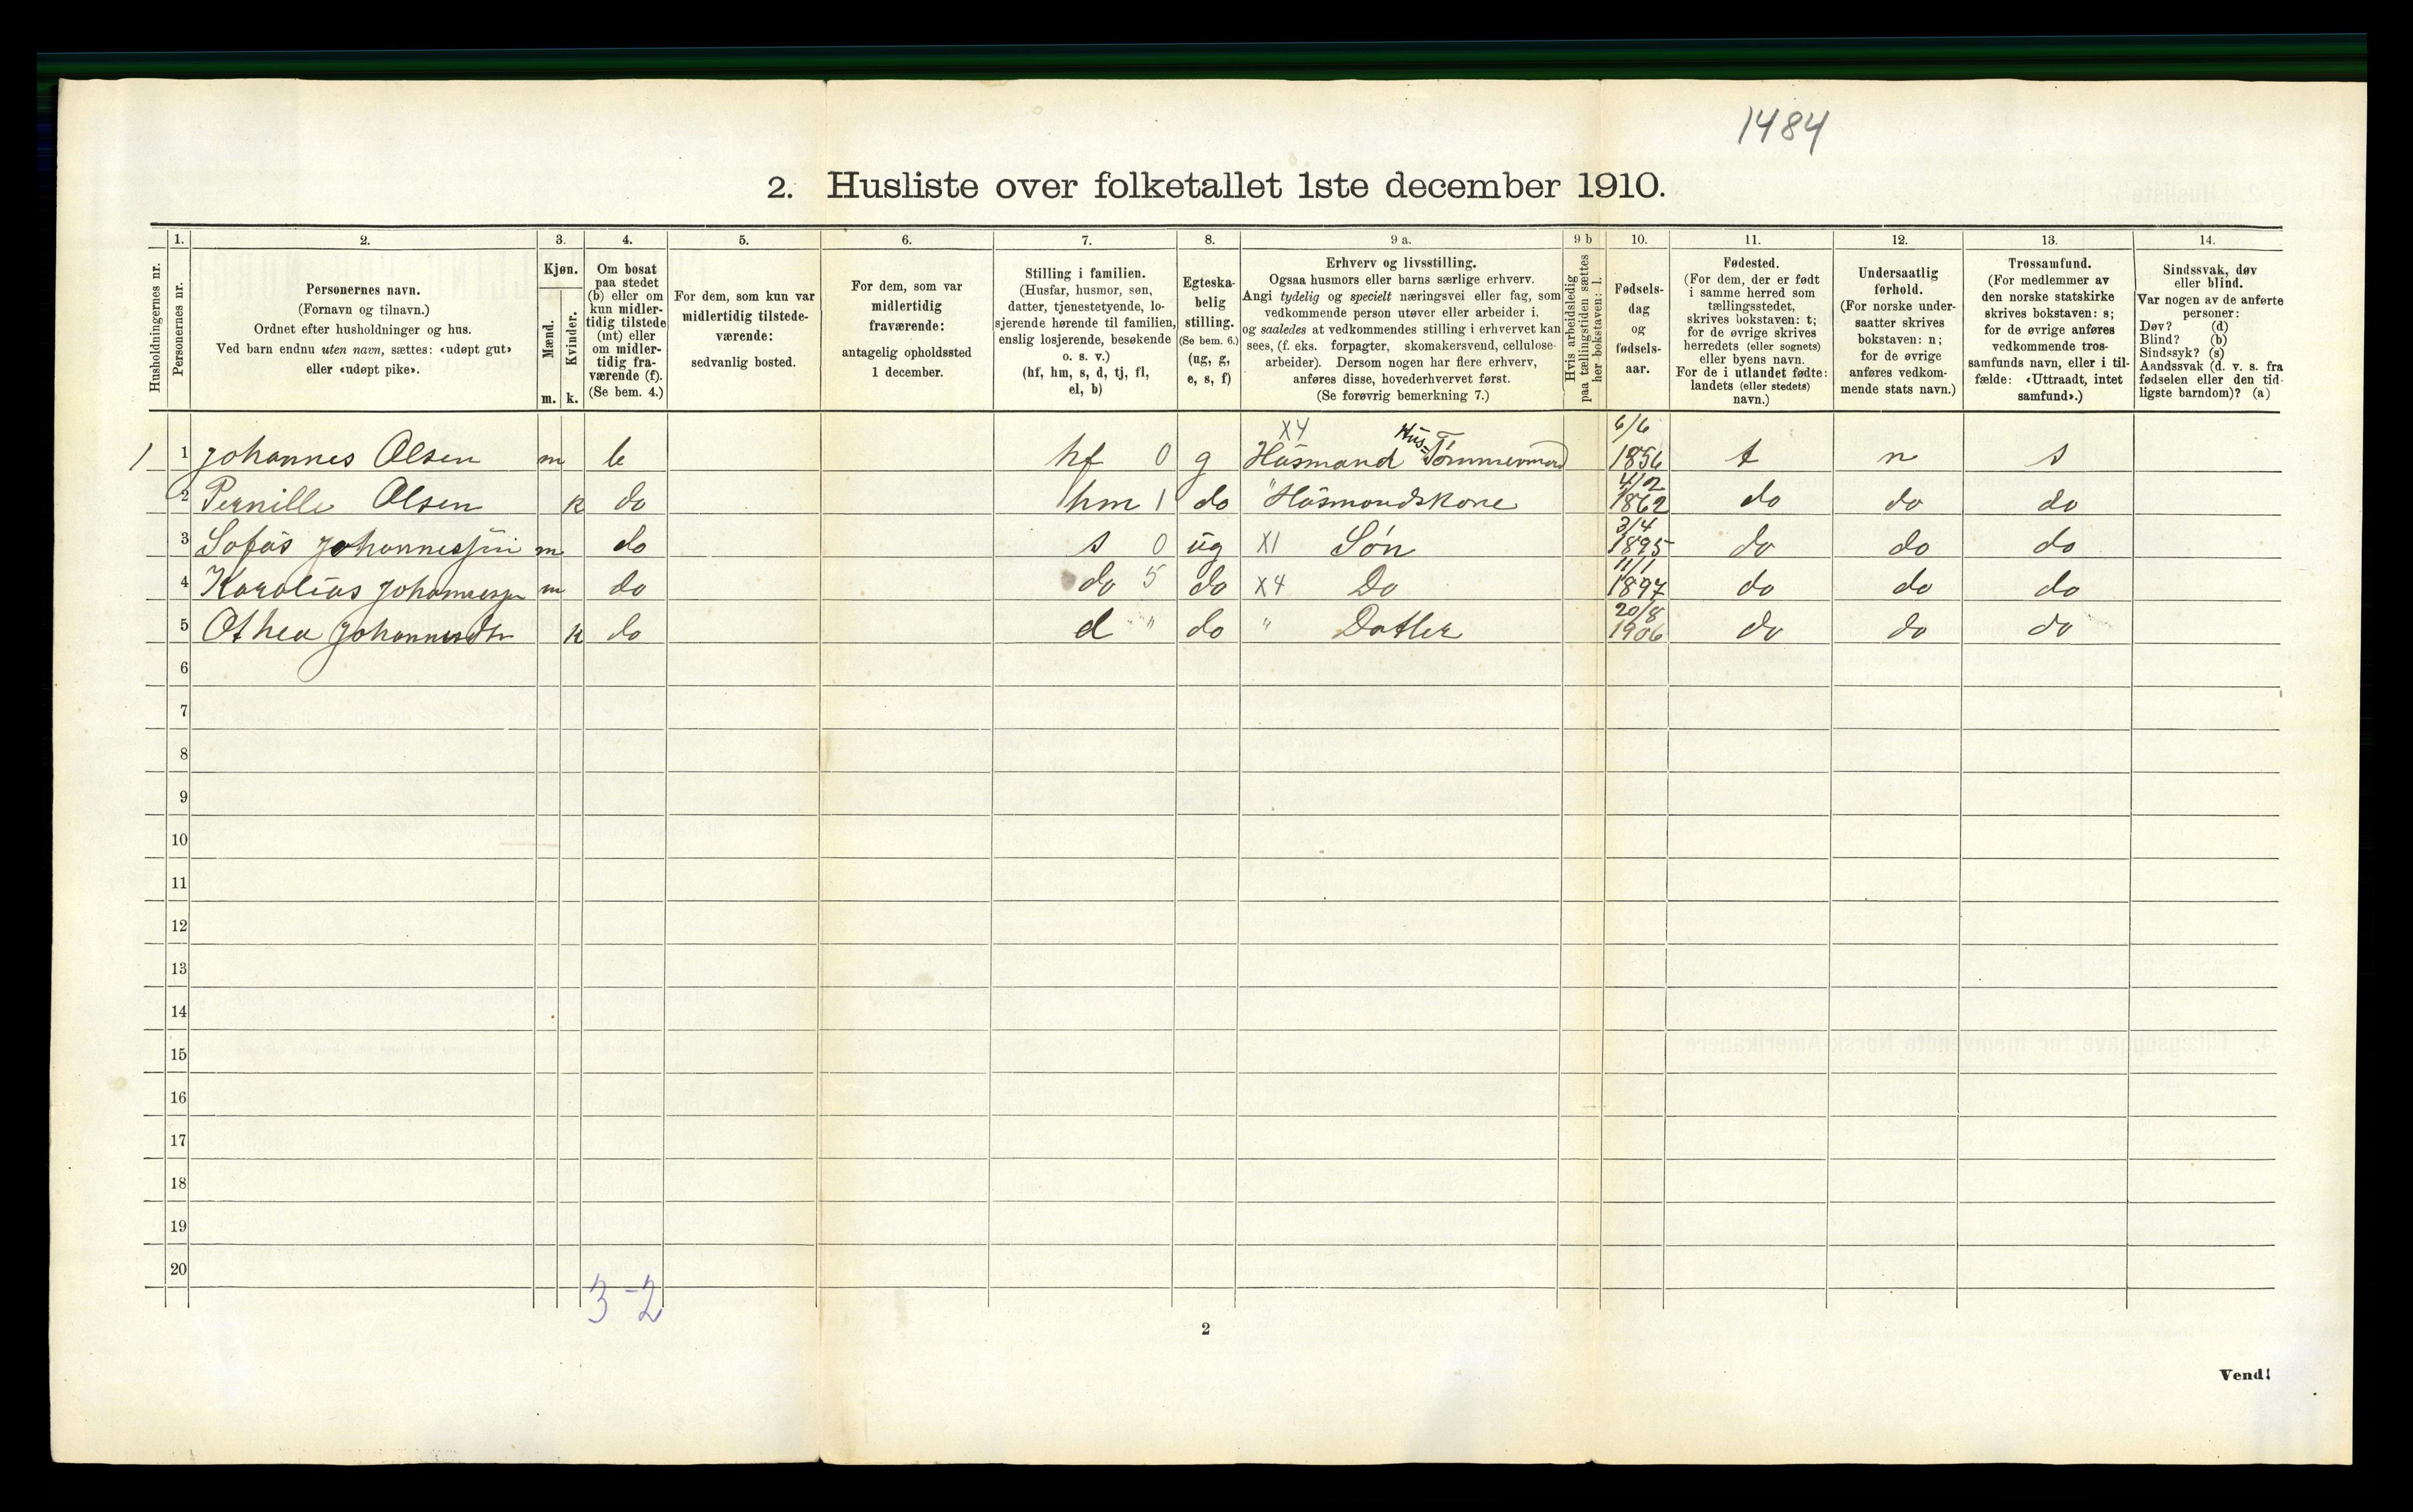 1484
2. Husliste over folketallet 1ste december 1910.
Husholdningernes nr.
1. Personernes nr.
2. Personernes navn.
(Fornavn og tilnavn.)
Ordnet efter husholdninger og hus.
Ved barn endnu uten navn, sættes: «udøpt gut»
eller «udøpt pike».
3. Kjøn.
Mænd. Kvinder.
m. k.
4. Om bosat
paa stedet
(b) eller om
kun midler-
tidig tilstede
(mt) eller
om midler-
tidig fra-
værende (f).
(Se bem. 4.)
5. For dem, som kun var
midlertidig tilstede-
værende:
sedvanlig bosted.
6. For dem, som var
midlertidig
fraværende:
antagelig opholdssted
1 december.
7. Stilling i familien.
(Husfar, husmor, søn,
datter, tjenestetyende, lo-
sjerende hørende til familien,
enslig losjerende, besøkende
o. s. v.)
(hf, hm, s, d, tj, fl,
el, b)
8. Egteska-
belig
stilling.
(Se bem. 6.)
(ug, g,
e, s, f)
9 a. Erhverv og livsstilling.
Ogsaa husmors eller barns særlige erhverv.
Angi tydelig og specielt næringsvei eller fag, som
vedkommende person utøver eller arbeider i,
og saaledes at vedkommendes stilling i erhvervet kan
sees, (f. eks. forpagter, skomakersvend, cellulose-
arbeider). Dersom nogen har flere erhverv,
anføres disse, hovederhvervet først.
(Se forøvrig bemerkning 7.)
9 b Hvis arbeidsledig
paa tællingstiden sættes
her bokstaven: l.
10. Fødsels-
dag
og
fødsels-
aar.
11. Fødested.
(For dem, der er født
i samme herred som
tællingsstedet,
skrives bokstaven: t;
for de øvrige skrives
herredets (eller sognets)
eller byens navn.
For de i utlandet fødte:
landets (eller stedets)
navn.)
12. Undersaatlig
forhold.
(For norske under-
saatter skrives
bokstaven: n;
for de øvrige
anføres vedkom-
mende stats navn.)
13. Trossamfund.
(For medlemmer av
den norske statskirke
skrives bokstaven: s;
for de øvrige anføres
vedkommende tros-
samfunds navn, eller i til-
fælde: «Uttraadt, intet
samfund».)
14. Sindssvak, døv
eller blind.
Var nogen av de anførte
personer:
Døv? (d)
Blind? (b)
Sindssyk? (s)
Aandssvak (d. v. s. fra
fødselen eller den tid-
ligste barndom)? (a)
1 1 Johannes Olsen m b hf 0 g X4 Husmand Hus=Tømmermand 6/6 1856 t n s
2 Pernille Olsen k do hm 1 do " Husmandskone 4/2 1862 do do do
3 Sofus Johannessen m do s 0 ug X1 Søn 3/4 1895 do do do
4 Karolius Johannessen m do do 5 do X4 Do 11/1 1897 do do do
5 Othea Johannesdtr k do d " do " Datter 20/8 1906 do do do
6
7
8
9
10
11
12
13
14
15
16
17
18
19
20
3-2
2
Vend!